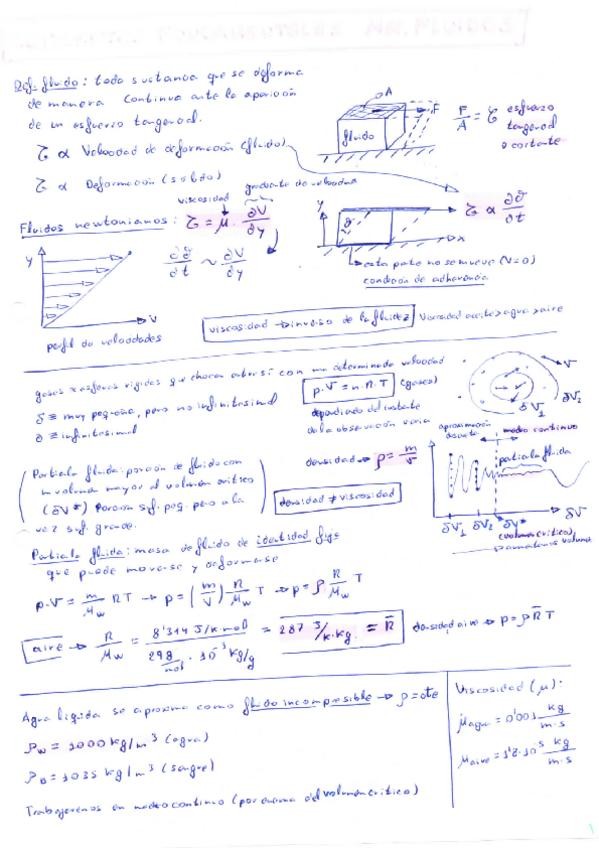 FUNDAMENTALES MEC. FLUIDOS
Def. fluido: toda sustancia que se deforma
de manera continua ante la aparición
de un esfuerzo tangencial.
A
F
fluido
F/A = τ esfuerzo
tangencial
o cortante
τ α Velocidad de deformación (fluido)
τ α Deformación (sólido)
viscosidad
gradiente de velocidades
Fluidos newtonianos: τ = μ · ∂V/∂y
y
x
τ α ∂θ/∂t
∂θ/∂t ~ ∂V/∂y
esta parte no se mueve (V=0)
condición de adherencia
y
V
perfil de velocidades
viscosidad → inverso de la fluidez
Viscosidad aceite > agua > aire
gases ≈ esferas rígidas que chocan entre sí con una determinada velocidad
p·V = n·R·T (gases)
δ ≡ muy pequeña, pero no infinitesimal
∂ ≡ infinitesimal
dependiendo del instante
de la observación varía
δV₁
δV₂
aproximación
discreta
medio continuo
partícula fluida
(Partícula fluida: porción de fluido con
un volumen mayor al volumen crítico
(δV*) Porción suf. peq. pero a la
vez suf. grande.)
densidad → ρ = m/V
densidad ≠ viscosidad
δV₁ δV₂ δV* δV
(volumen crítico)
Partícula fluida: masa de fluido de identidad fija
que puede moverse y deformarse
p·V = m/Mw RT → p = (m/V) R/Mw T → p = ρ R/Mw T
aire → R/Mw = 8'314 J/k·mol / 29 g/mol · 10⁻³ kg/g = 287 J/k·kg = R̄
densidad aire → p = ρ R̄ T
Agua líquida se aproxima como fluido incompresible → ρ = cte
ρw = 1000 kg/m³ (agua)
ρB = 1035 kg/m³ (sangre)
Trabajaremos en medio continuo (por encima del volumen crítico)
Viscosidad (μ):
μagua = 0'001 kg/m·s
μaire = 1'8·10⁻⁵ kg/m·s
1